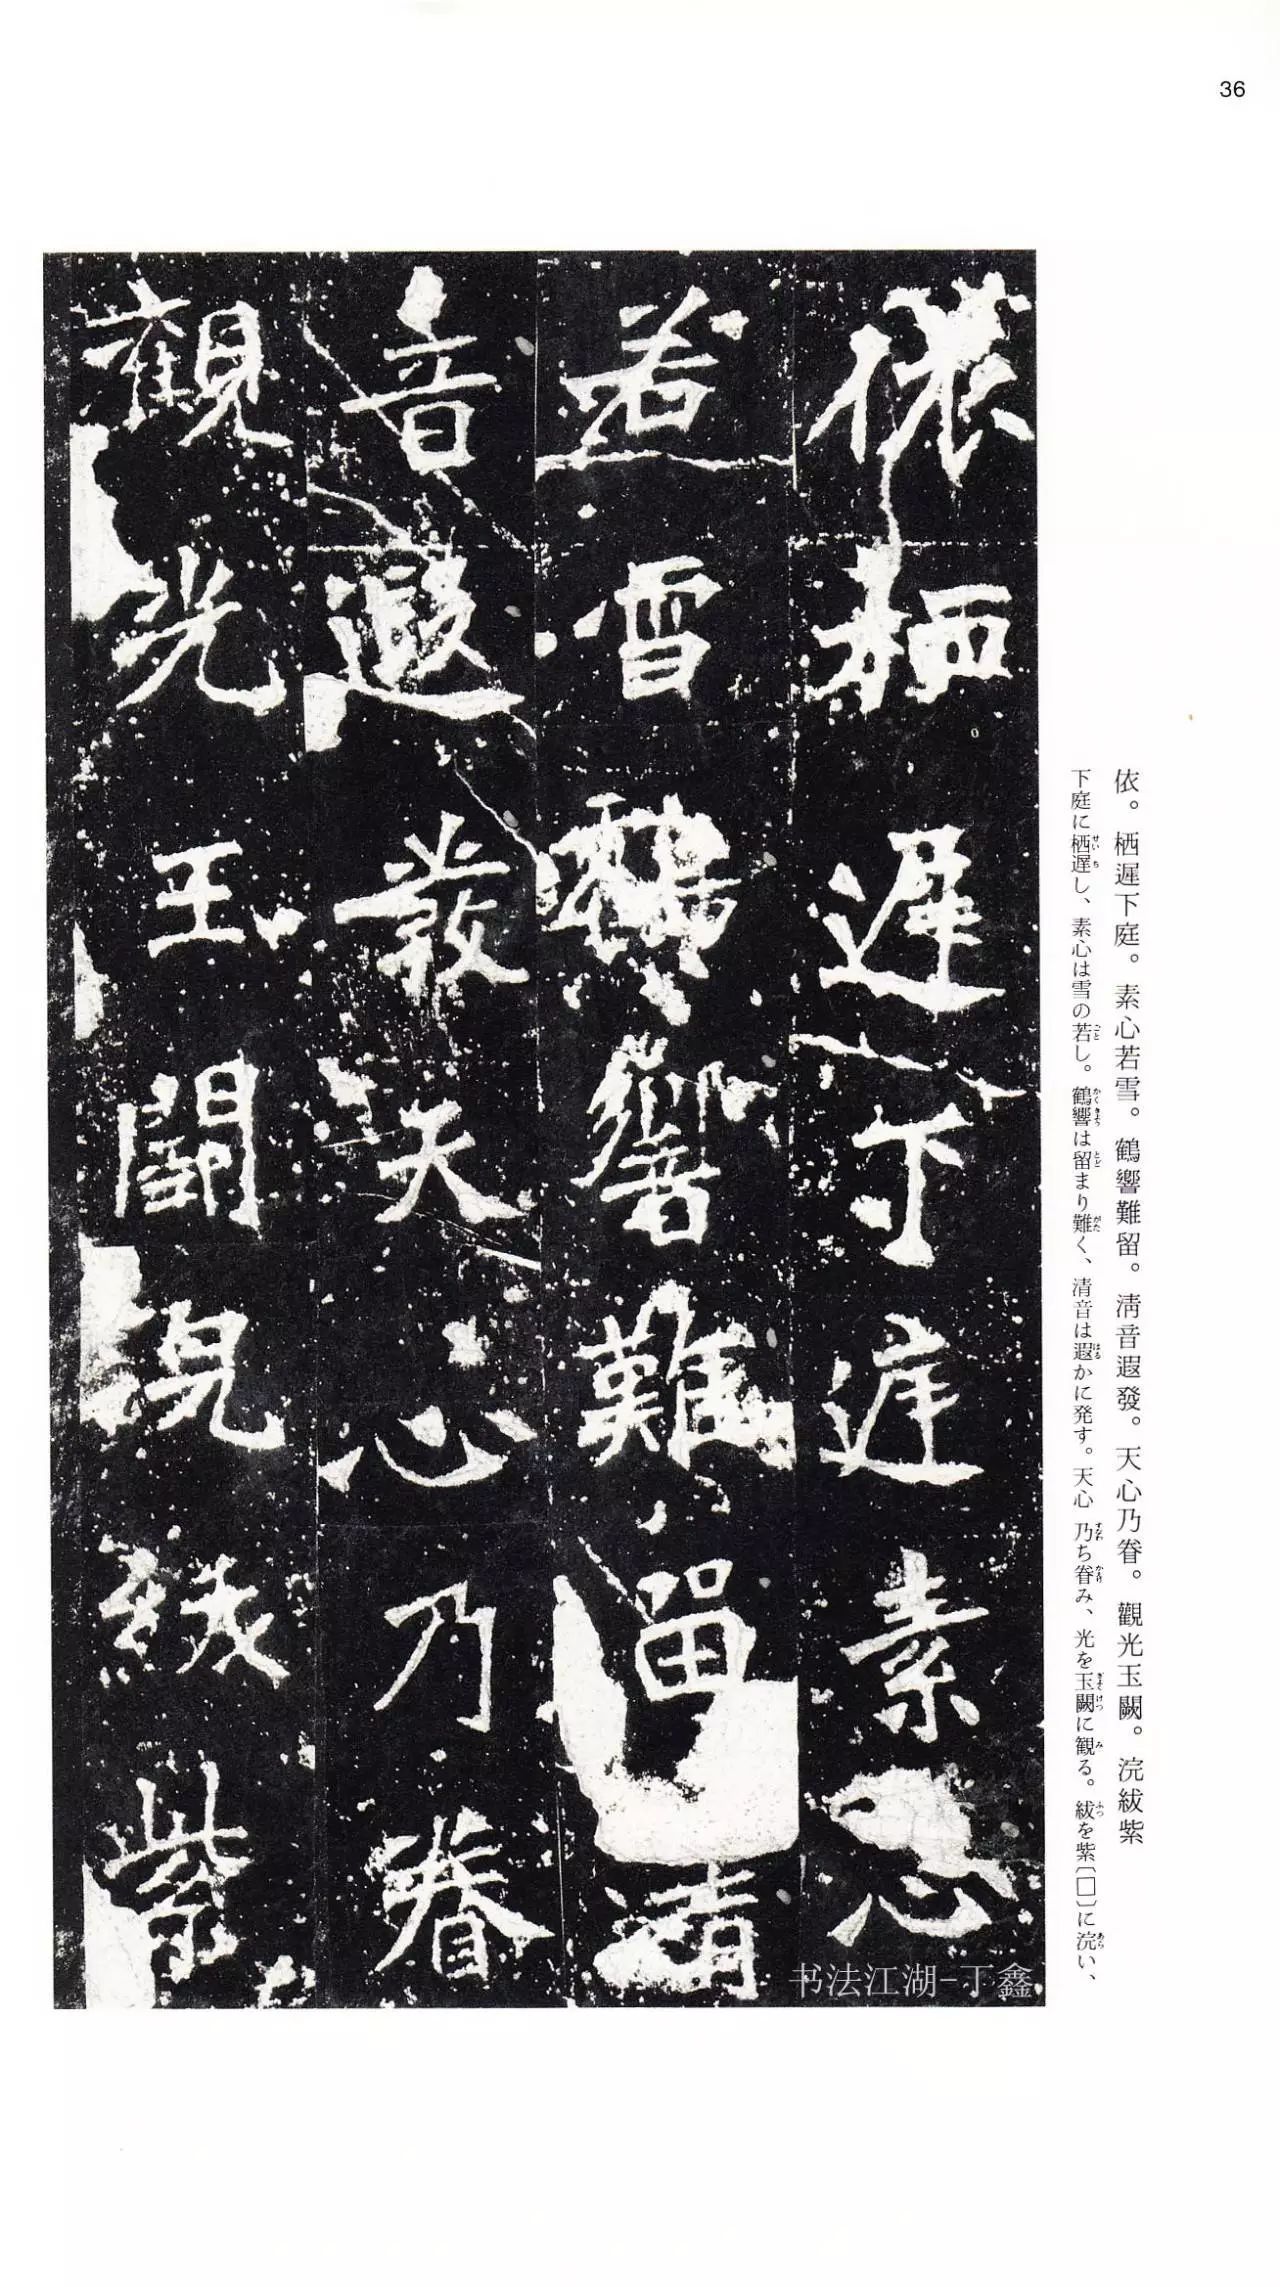 36
依。栖遲下庭。素心若雪。鶴響難留。淸音遐發。天心乃眷。觀光玉闕。浣紱紫
下庭に栖遲し、素心は雪の若し。鶴響は留まり難く、清音は遐かに発す。天心乃ち眷み、光を玉闕に観る。紱を紫〔□〕に浣い、
依栖遲下庭素心
若雪鶴響難留清
音遐發天心乃眷
觀光玉闕浣紱紫
书法江湖-丁鑫